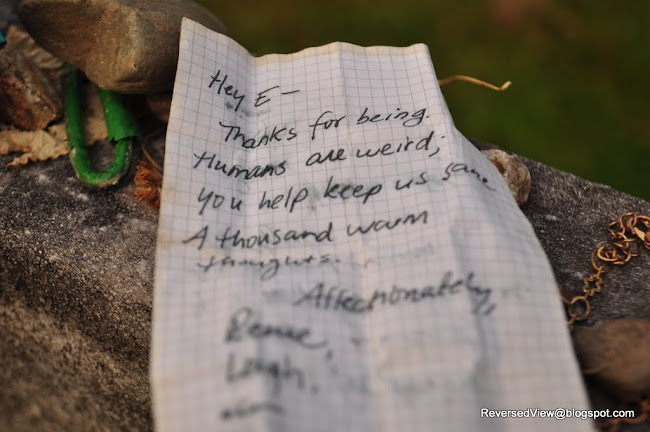 Hey E –
Thanks for being.
Humans are weird;
you help keep us sane.
A thousand warm
thoughts.
Affectionately,
ReversedView@blogspot.com